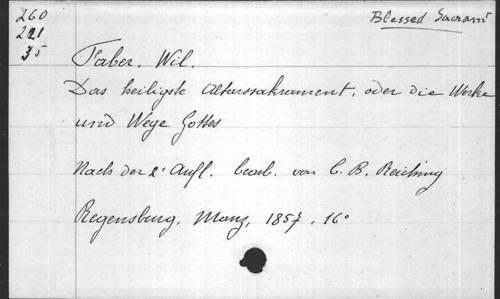 260
221
35
Blessed Sacramt
Faber. Wil.
Das heiligste Altarssakrament, oder die Werke
und Wege Gottes
Nach der 2ᵉ Aufl. bearb. von C. B. Reiching
Regensburg, Manz, 1857, 16°